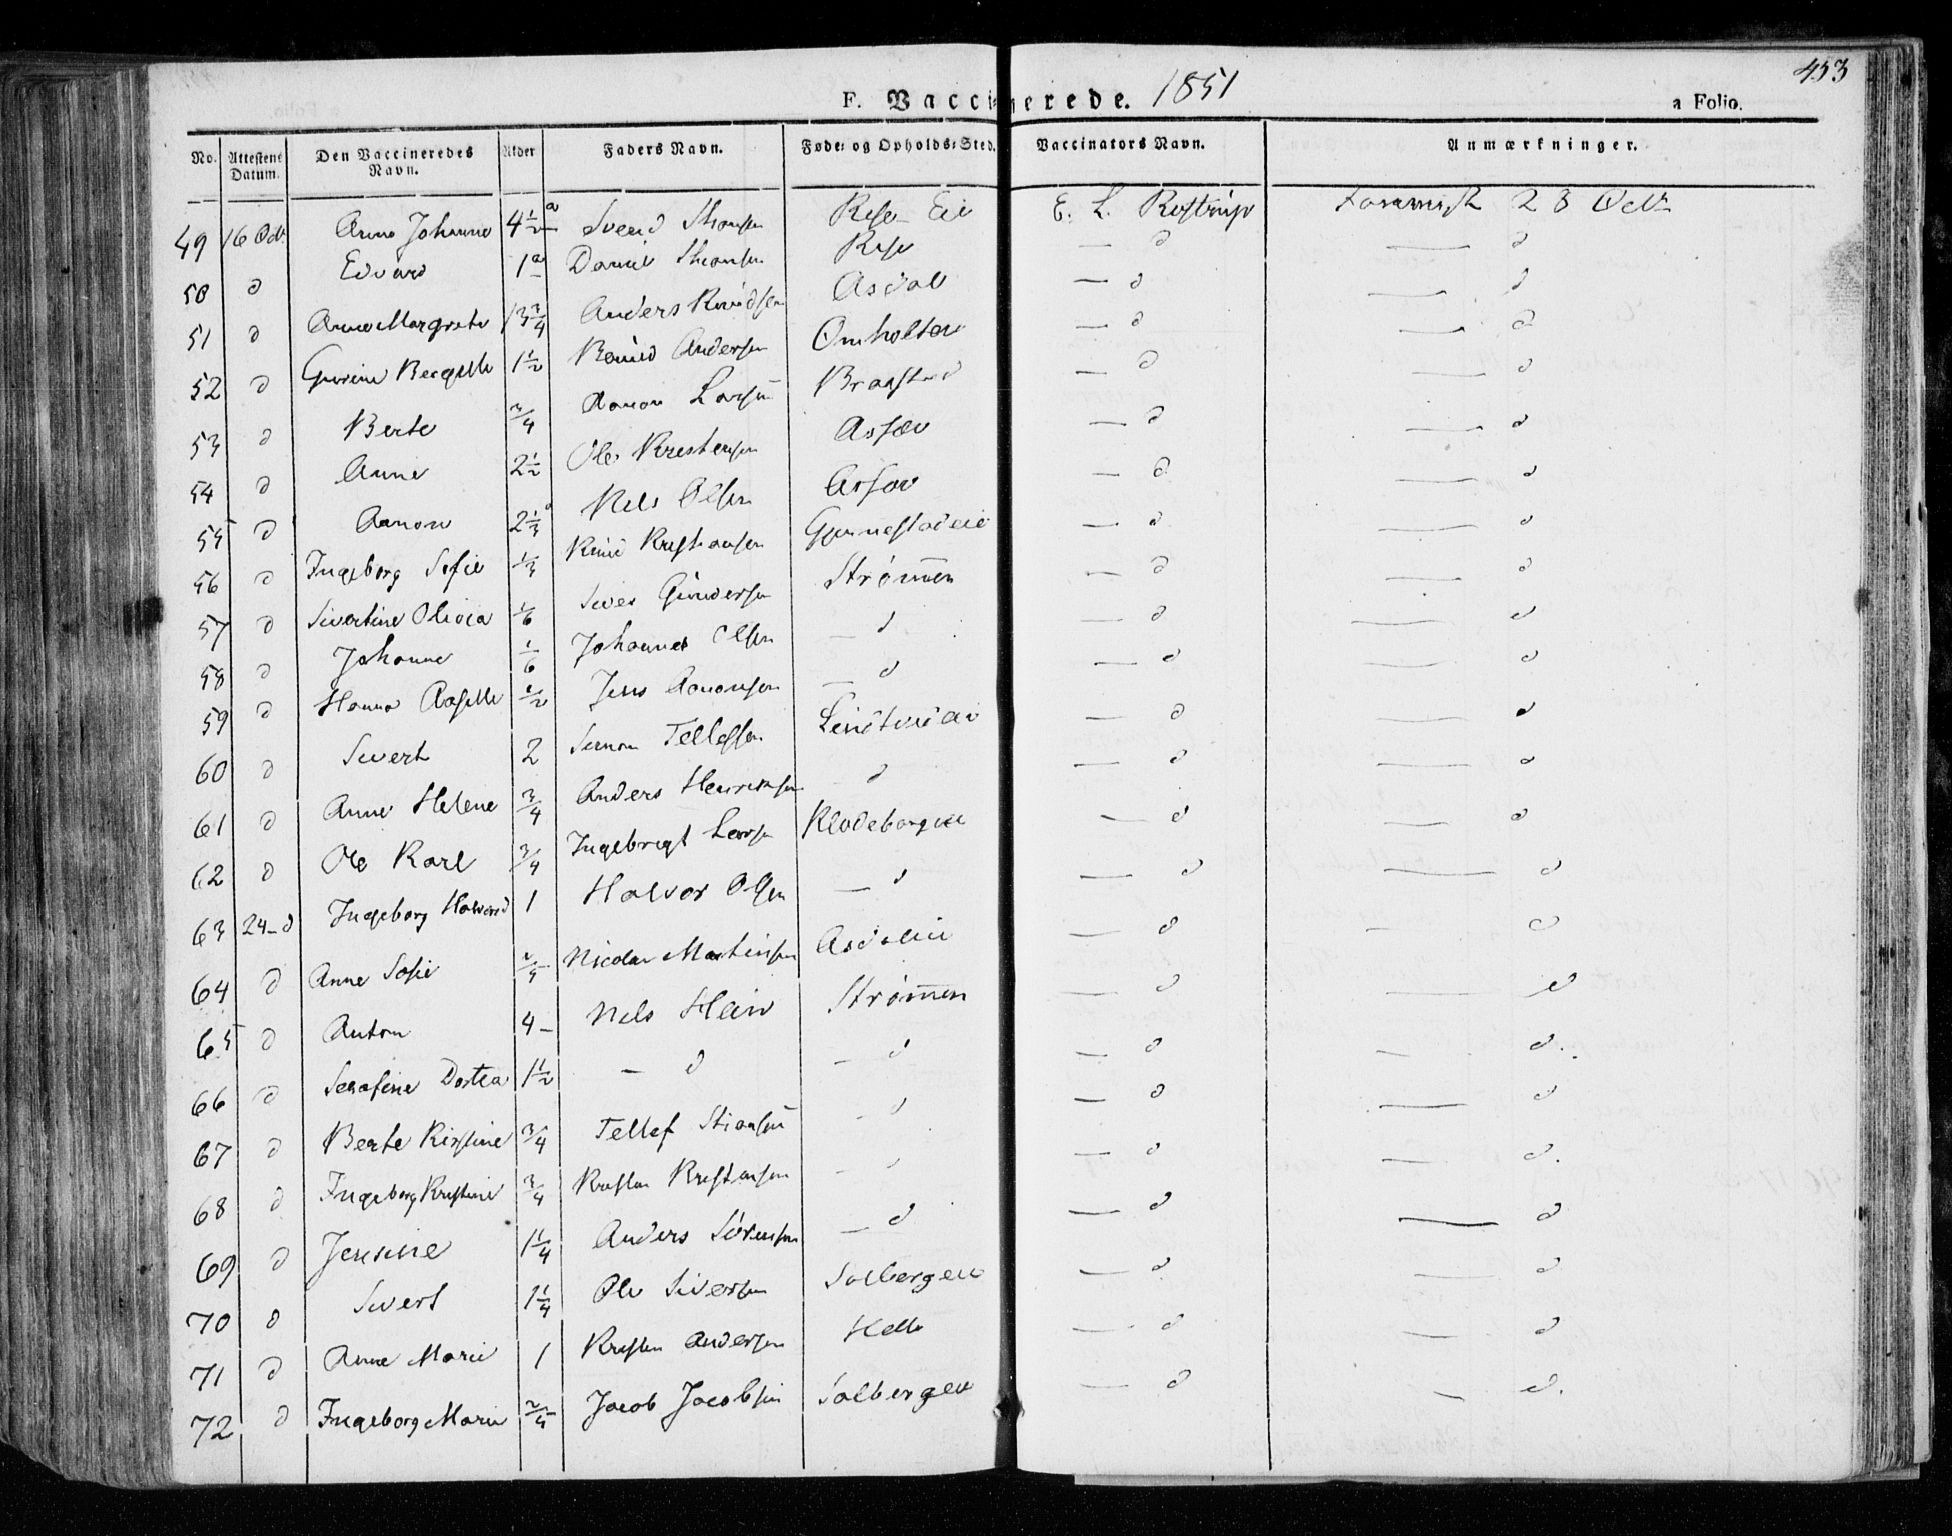 453
F. Vaccinerede. 1851
a Folio.
No. Attestens Datum. Den Vaccineredes Navn. Alder Faders Navn. Føde= og Opholds=Sted. Vaccinators Navn. Anmærkninger.
49 16 Octr Anne Johanne 4½ a Svend Rise Eie E. L. Rostrup 28 Octr
50 d Edvard 1 a Daniel Rise — d — d
51 d Anne Margrete 13¾ Anders Knudsen Asdal — d — d
52 d Gurine 1½ Knud Andersen Omholten — d — d
53 d Berte ¾ Aanon Larsen Braastad — d — d
54 d Anne 2½ Ole Kristensen — d — d
55 d Aanon 2⅓ Nels Olsen — d — d
56 d Ingeborg Sofie ⅓ Knud Kristiansen — d — d
57 d Sivertine Olivia 1/6 Gundersen Strømen — d — d
58 d Johanne 1/6 Johannes Olsen — d — d — d
59 d Hanna ½ Jens Aanonsen — d — d — d
60 d Sivert 2 Tellefsen — d — d
61 d Anne Helene ¾ Anders Henriksen d — d — d
62 d Ole Karl ¾ Ingebregt Larsen Klodeborgeie — d — d
63 24 — d Ingeborg 1 Halvor Olsen — d — d — d
64 d Anne Sofie Nicolai Martinsen Asdaleie — d — d
65 d Anton 4 — Nels Hein Strømen — d — d
66 d Serafine Dortea 1½ — d — d — d — d.
67 d Berte Kirstine ¾ Tellef Stiansen — d — d — d
68 d Ingeborg Kristine ¾ Kristen Kristansen — d — d — d.
69 d Jensine 1¼ Anders Sörensen — d — d — d
70 d Sivert 1¼ Ole Siversen Solbergeie — d — d
71 d Anne Marie 1 Kristen Andersen Helle — d — d
72 d Ingeborg Marie Jacob Jacobsen Solbergeie — d — d.